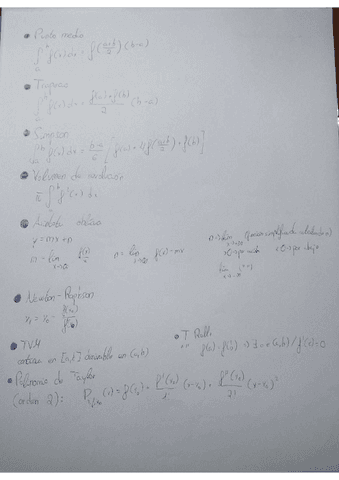 • Punto medio
∫ₐᵇ f(x) dx = f((a+b)/2) (b-a)
• Trapecio
∫ₐᵇ f(x) dx = (f(a)+f(b))/2 (b-a)
• Simpson
∫ₐᵇ f(x) dx = (b-a)/6 [f(a) + 4f((a+b)/2) + f(b)]
• Volumen de revolución
π ∫ₐᵇ f²(x) dx
• Asíntota oblicua
y = mx + n
m = lim x→∞ f(x)/x n = lim x→∞ f(x) - mx
• Newton-Raphson
x₁ = x₀ - f(x₀)/f'(x₀)
• TVM
continua en [a,b] derivable en (a,b)
• T Rolle
f(a) = f(b) => ∃ c ∈ (a,b) / f'(c) = 0
• Polinomio de Taylor
(orden 2): (x) = f(x₀) + f'(x₀)/1! (x-x₀) + f''(x₀)/2! (x-x₀)²